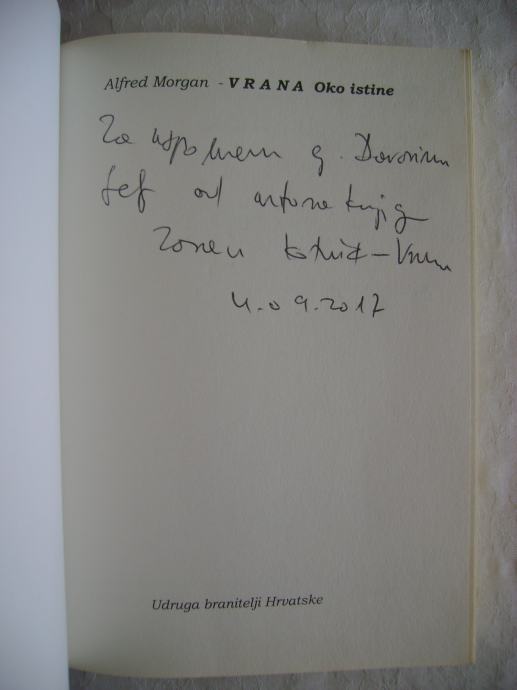 Alfred Morgan - VRANA Oko istine
Za uspomenu g. Davorinu
šef od autora knjige
Zoran
4.09.2017
Udruga branitelji Hrvatske